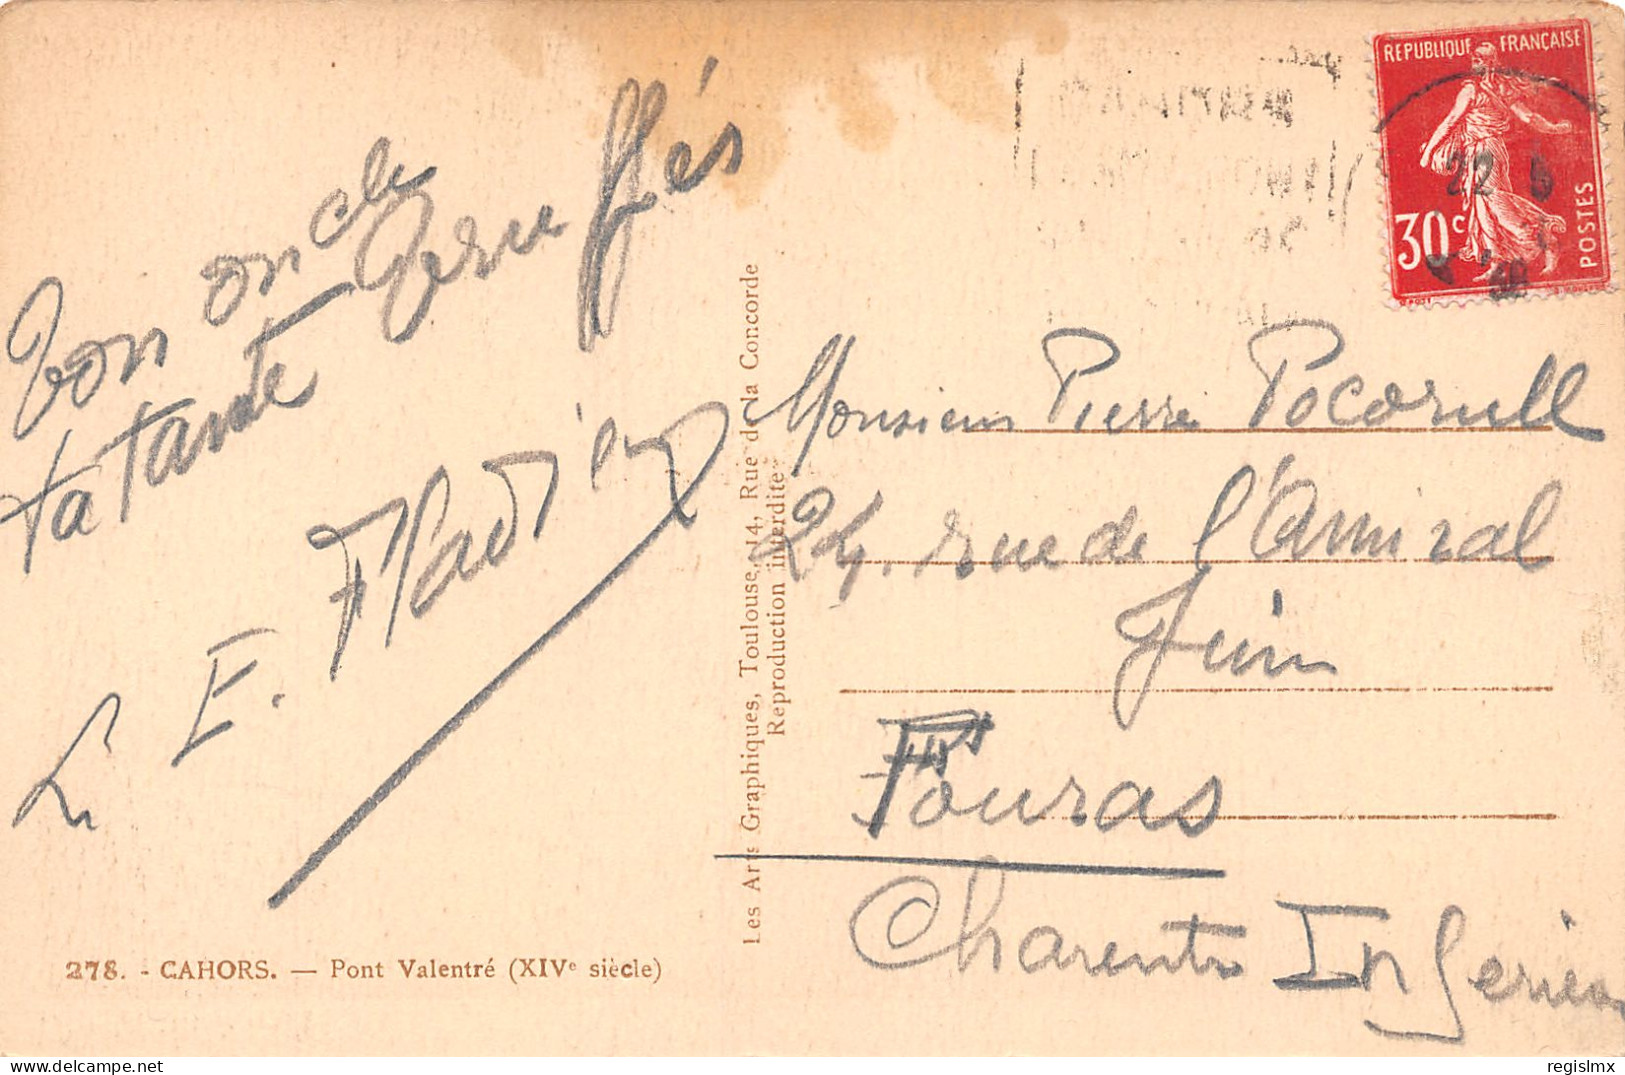 ton oncle
ta tante
L E.
Monsieur Pierre Pocorull
24. rue de l'Amiral
Juin
Fouras
Charente Inferieur
Les Arts Graphiques, Toulouse, 14, Rue de la Concorde
Reproduction interdite
278. - CAHORS. — Pont Valentré (XIVe siècle)
REPUBLIQUE FRANÇAISE
30c
POSTES
22 5
regislmx